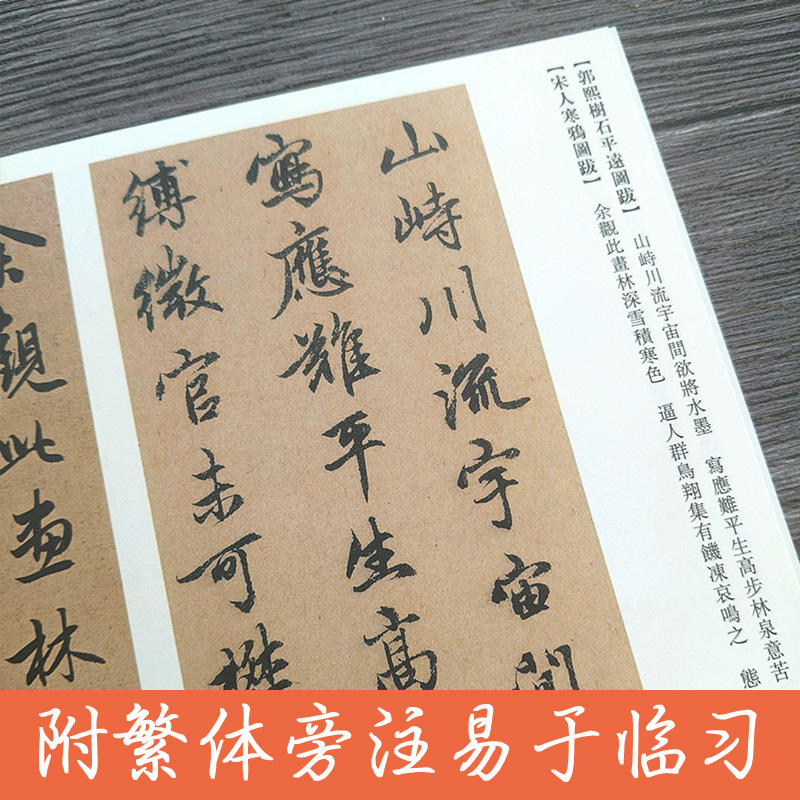 【郭熙樹石平遠圖跋】 山峙川流宇宙間欲將水墨 寫應難平生高步林泉意苦
【宋人寒鴉圖跋】 余觀此畫林深雪積寒色 逼人群鳥翔集有饑凍哀鳴之 態
山峙川流宇宙間
寫應難平生高
縛微官未可
余觀此畫林
附繁体旁注易于临习